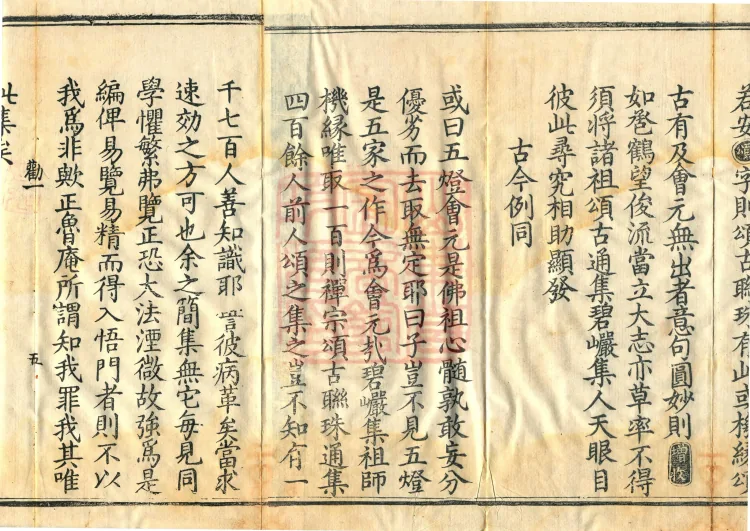 若安 字則頌古聯珠有此或機緣頌
古有及會元無出者意句圓妙則
如卷鶴望俊流當立大志亦草率不得
須將諸祖頌古通集碧巖集人天眼目
彼此尋究相助顯發
古今例同
或曰五燈會元是佛祖心髓孰敢妄分
優劣而去取無定耶曰子豈不見五燈
是五家之作今爲會元㢤碧巖集祖師
機緣唯取一百則禪宗頌古聯珠通集
四百餘人前人頌之集之豈不知有一
千七百人善知識耶 譬彼病革矣當求
速効之方可也余之簡集無它每見同
學懼繁弗覽正恐大法湮微故強爲是
編俾易覽易精而得入悟門者則不以
我爲非歟正魯庵所謂知我罪我其唯
此集矣
勸一
五